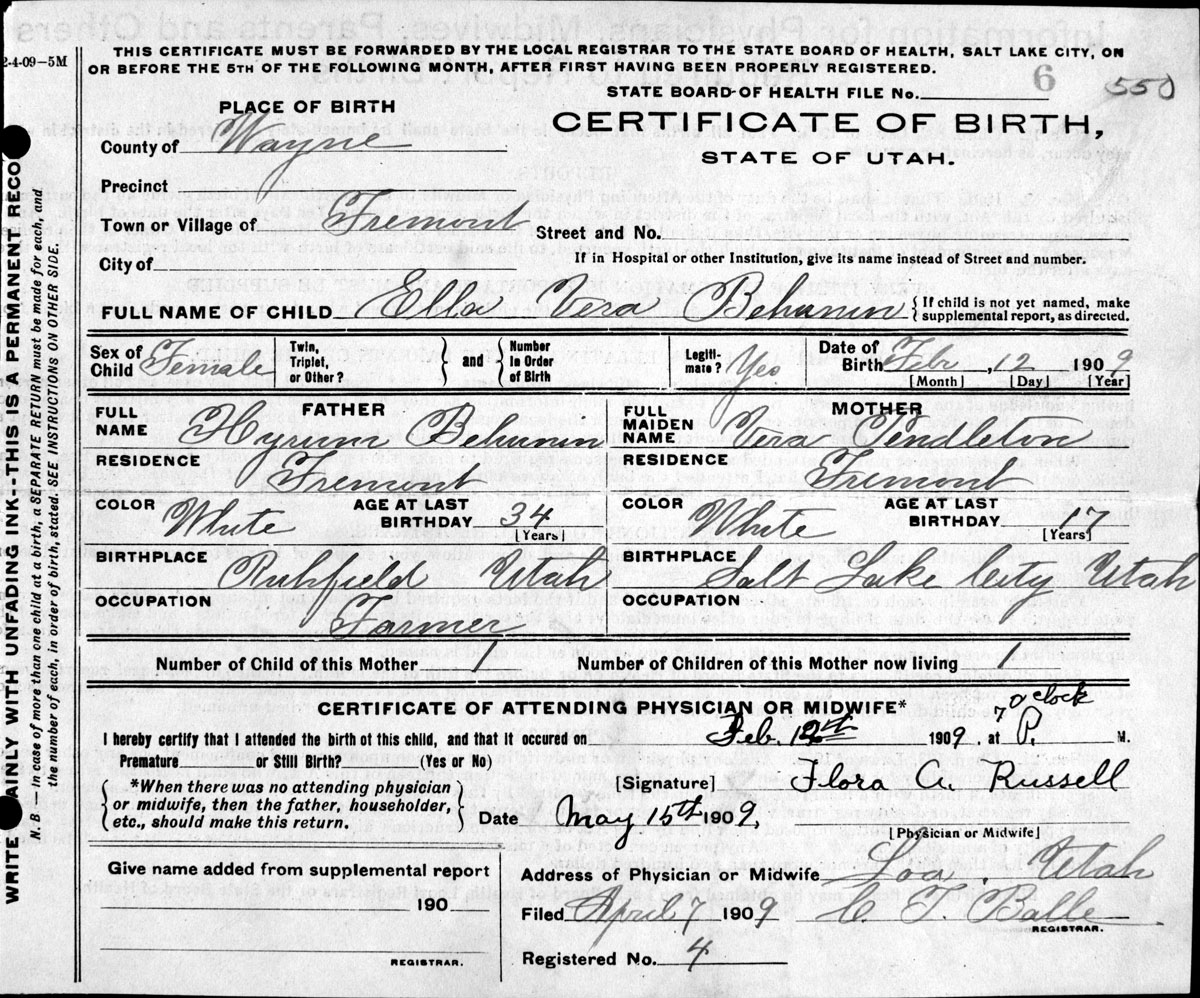 THIS CERTIFICATE MUST BE FORWARDED BY THE LOCAL REGISTRAR TO THE STATE BOARD OF HEALTH, SALT LAKE CITY, ON
2-4-09—5M
OR BEFORE THE 5TH OF THE FOLLOWING MONTH, AFTER FIRST HAVING BEEN PROPERLY REGISTERED.
STATE BOARD OF HEALTH FILE No. 6 550
PLACE OF BIRTH
CERTIFICATE OF BIRTH,
County of Wayne
STATE OF UTAH.
Precinct
Town or Village of Fremont
Street and No.
City of
If in Hospital or other Institution, give its name instead of Street and number.
FULL NAME OF CHILD Ella Vera Behunin { If child is not yet named, make
supplemental report, as directed.
Sex of
Child Female
Twin,
Triplet,
or Other?
} and {
Number
in Order
of Birth
Legiti-
mate? Yes
Date of
Birth Febr, 12 1909
[Month] [Day] [Year]
FATHER
FULL
NAME Hyrum Behunin
RESIDENCE
Fremont
COLOR White
AGE AT LAST
BIRTHDAY 34
[Years]
BIRTHPLACE
Richfield Utah
OCCUPATION
Farmer
MOTHER
FULL
MAIDEN
NAME Vera Pendleton
RESIDENCE
Fremont
COLOR White
AGE AT LAST
BIRTHDAY 17
[Years]
BIRTHPLACE
Salt Lake City Utah
OCCUPATION
Number of Child of this Mother 1 Number of Children of this Mother now living 1
CERTIFICATE OF ATTENDING PHYSICIAN OR MIDWIFE*
I hereby certify that I attended the birth of this child, and that it occured on Feb. 12th 1909. at 7 o'clock P. M.
Premature or Still Birth? (Yes or No)
{ *When there was no attending physician
or midwife, then the father, householder,
etc., should make this return. }
[Signature] Flora A. Russell
Date May 15th 1909.
[Physician or Midwife]
Give name added from supplemental report
190
REGISTRAR.
Address of Physician or Midwife Loa, Utah
Filed April 7 1909
REGISTRAR.
Registered No. 4
WRITE PLAINLY WITH UNFADING INK--THIS IS A PERMANENT RECO
N. B.—In case of more than one child at a birth, a SEPARATE RETURN must be made for each, and
the number of each, in order of birth, stated. SEE INSTRUCTIONS ON OTHER SIDE.